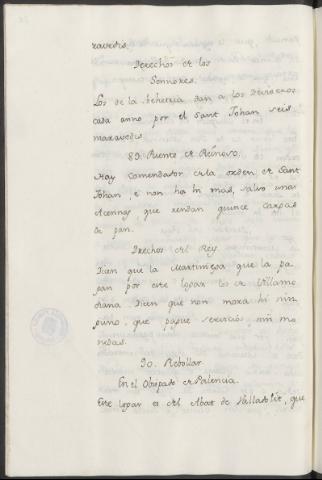 ravedis.
Derechos de los
Sennores.
Los de la beherria dan a los deviseros
cada anno por el Sant Johan seis
maravedis.
89. Puente de Reinoso.
Hay Comendador de la orden de Sant
Johan, e non ha hi mas, salvo unas
acennas, que rendan quince cargas
de pan.
Drechos del Rey.
Dicen que la Martiniega que la pa-
gan por este logar los de Villamo
diana. Dicen que non mora hi nin
guno, que pague servicios, nin mo
nedas.
90. Rebollar.
En el Obispado de Palencia.
Este logar es del Abat de Valladolit, que